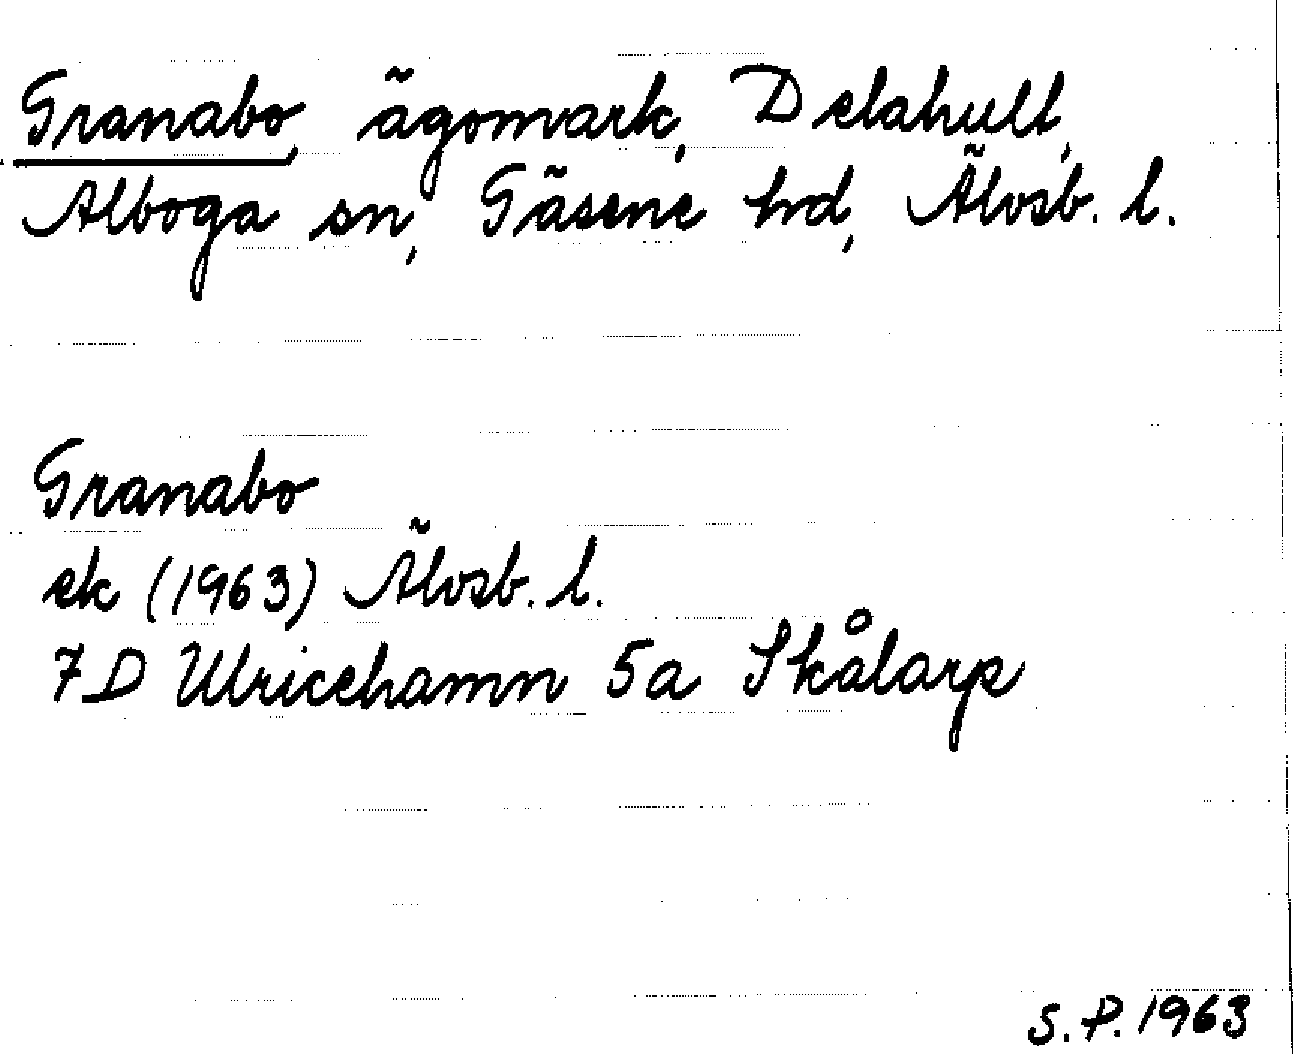 Granabo, ägomark, Delahult,
Alboga sn, Gäsene hd, Älvsb. l.
Granabo
ek (1963) Älvsb. l.
7D Ulricehamn 5a Skålarp
S.P. 1963